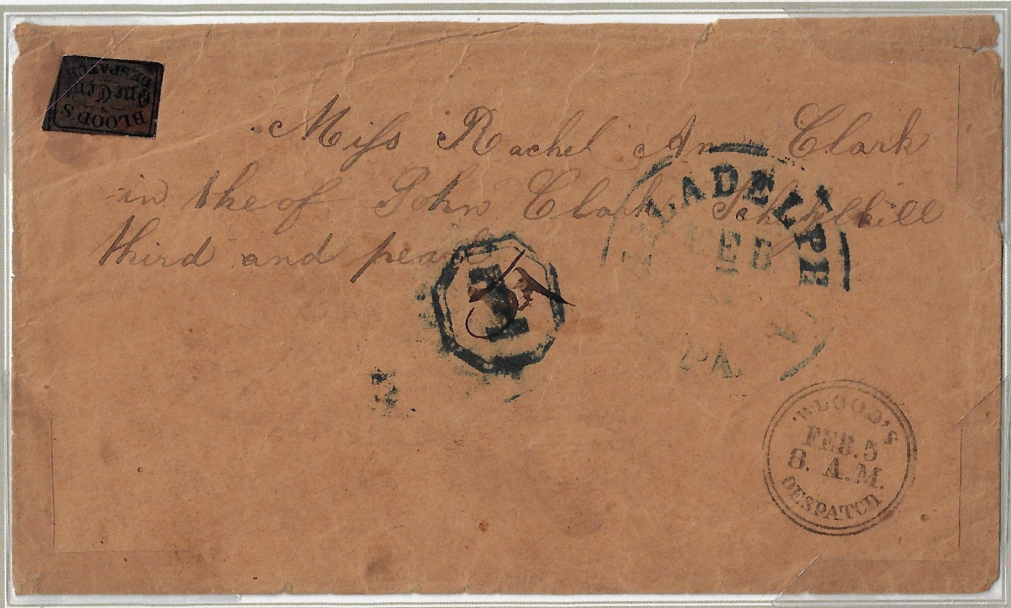 BLOOD'S
One Cent
DESPATCH
Miss Rachel Ann Clark
in the of John Clark Schuylkill
third and pearl
PHILADELPHIA
FEB
PA.
BLOOD'S
FEB. 5
8. A.M.
DESPATCH